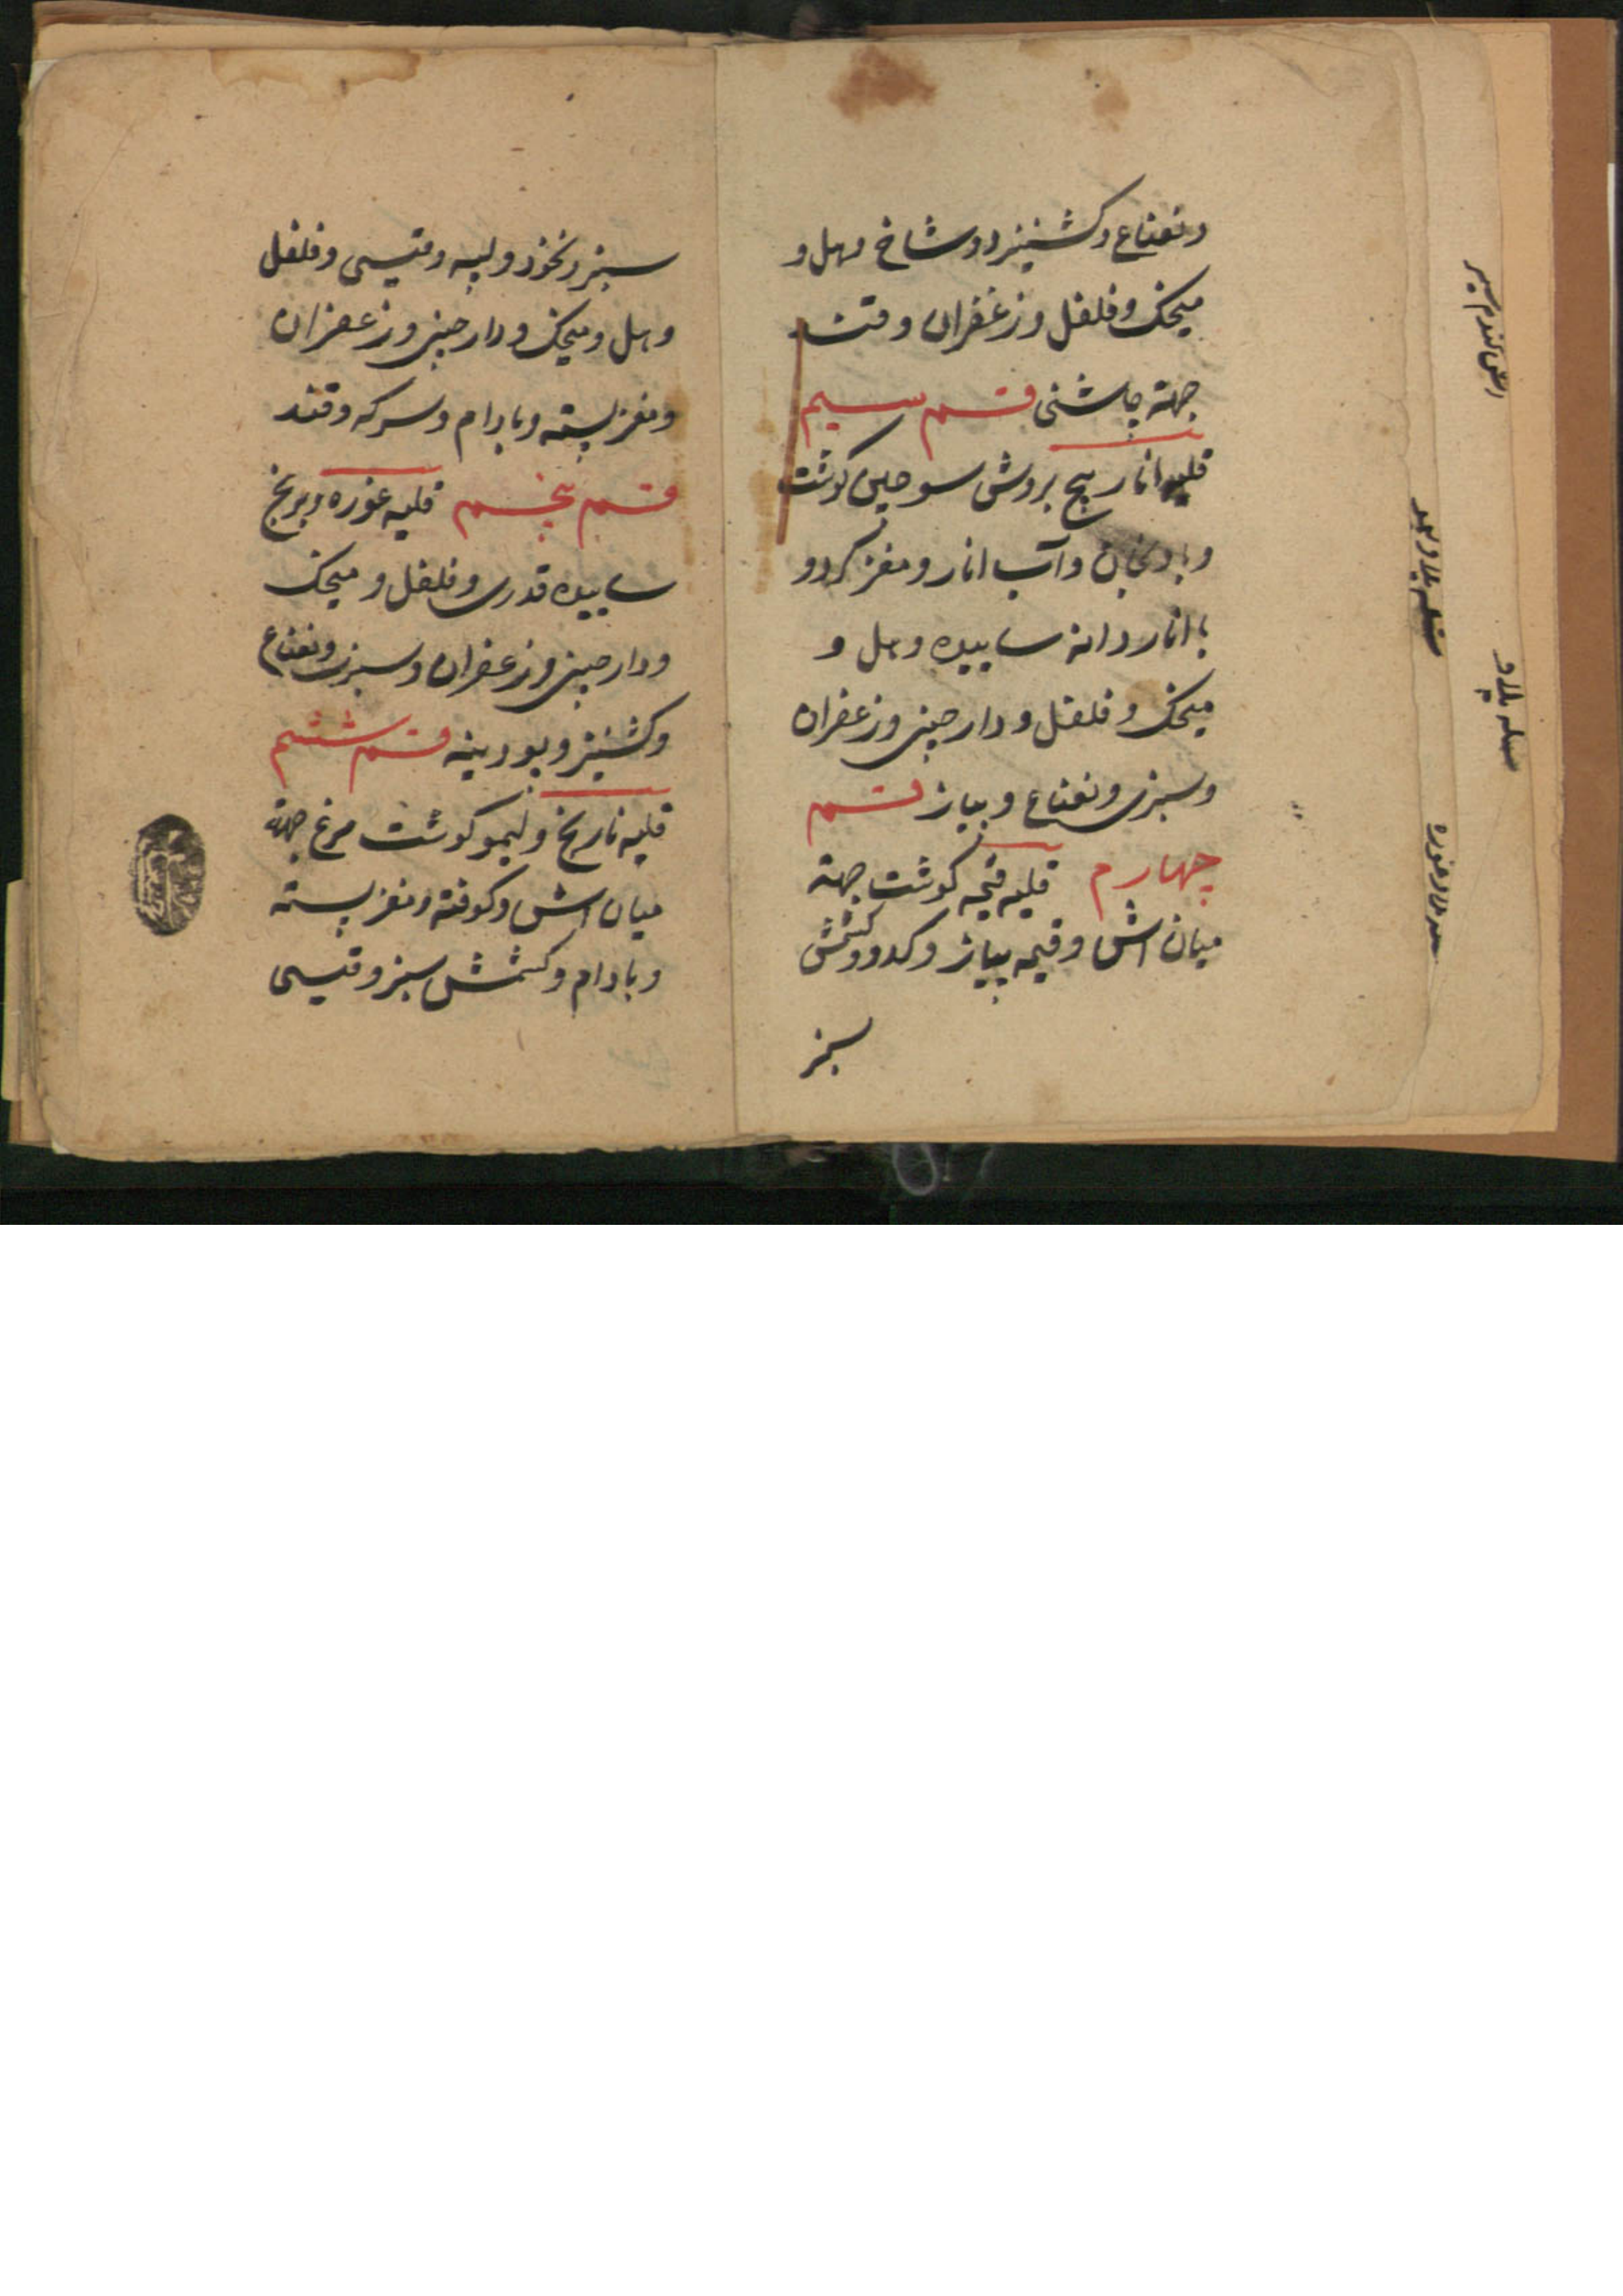 و نعناع و کشنیز و دو شاخ و هل و
میخک و فلفل و زعفران و قند
جهة چاشنی قسم سیم
قلیه انار بیج بروش سوجلی گوشت
و بادنجان و آب انار و مغز گردو
با انار دانه ساییده و هل و
میخک و فلفل و دارچینی و زعفران
و سبزی و نعناع و پیاز قسم
چهارم قلیه قیمه گوشت جهة
میان آش و قیمه پیاز و کدو و کشمش
سبز
سبز و نخود و لپه و قیسی و فلفل
و هل و میخک و دارچینی و زعفران
و مغز پسته و بادام و سرکه و قند
قسم پنجم قلیه غوره و برنج
ساییده قدری و فلفل و میخک
و دارچینی و زعفران و سبزی و نعناع
و کشنیز و بودینه قسم ششم
قلیه نارنج و لیمو گوشت مرغ جهة
میان آش و کوفته و مغز پسته
و بادام و کشمش سبز و قیسی